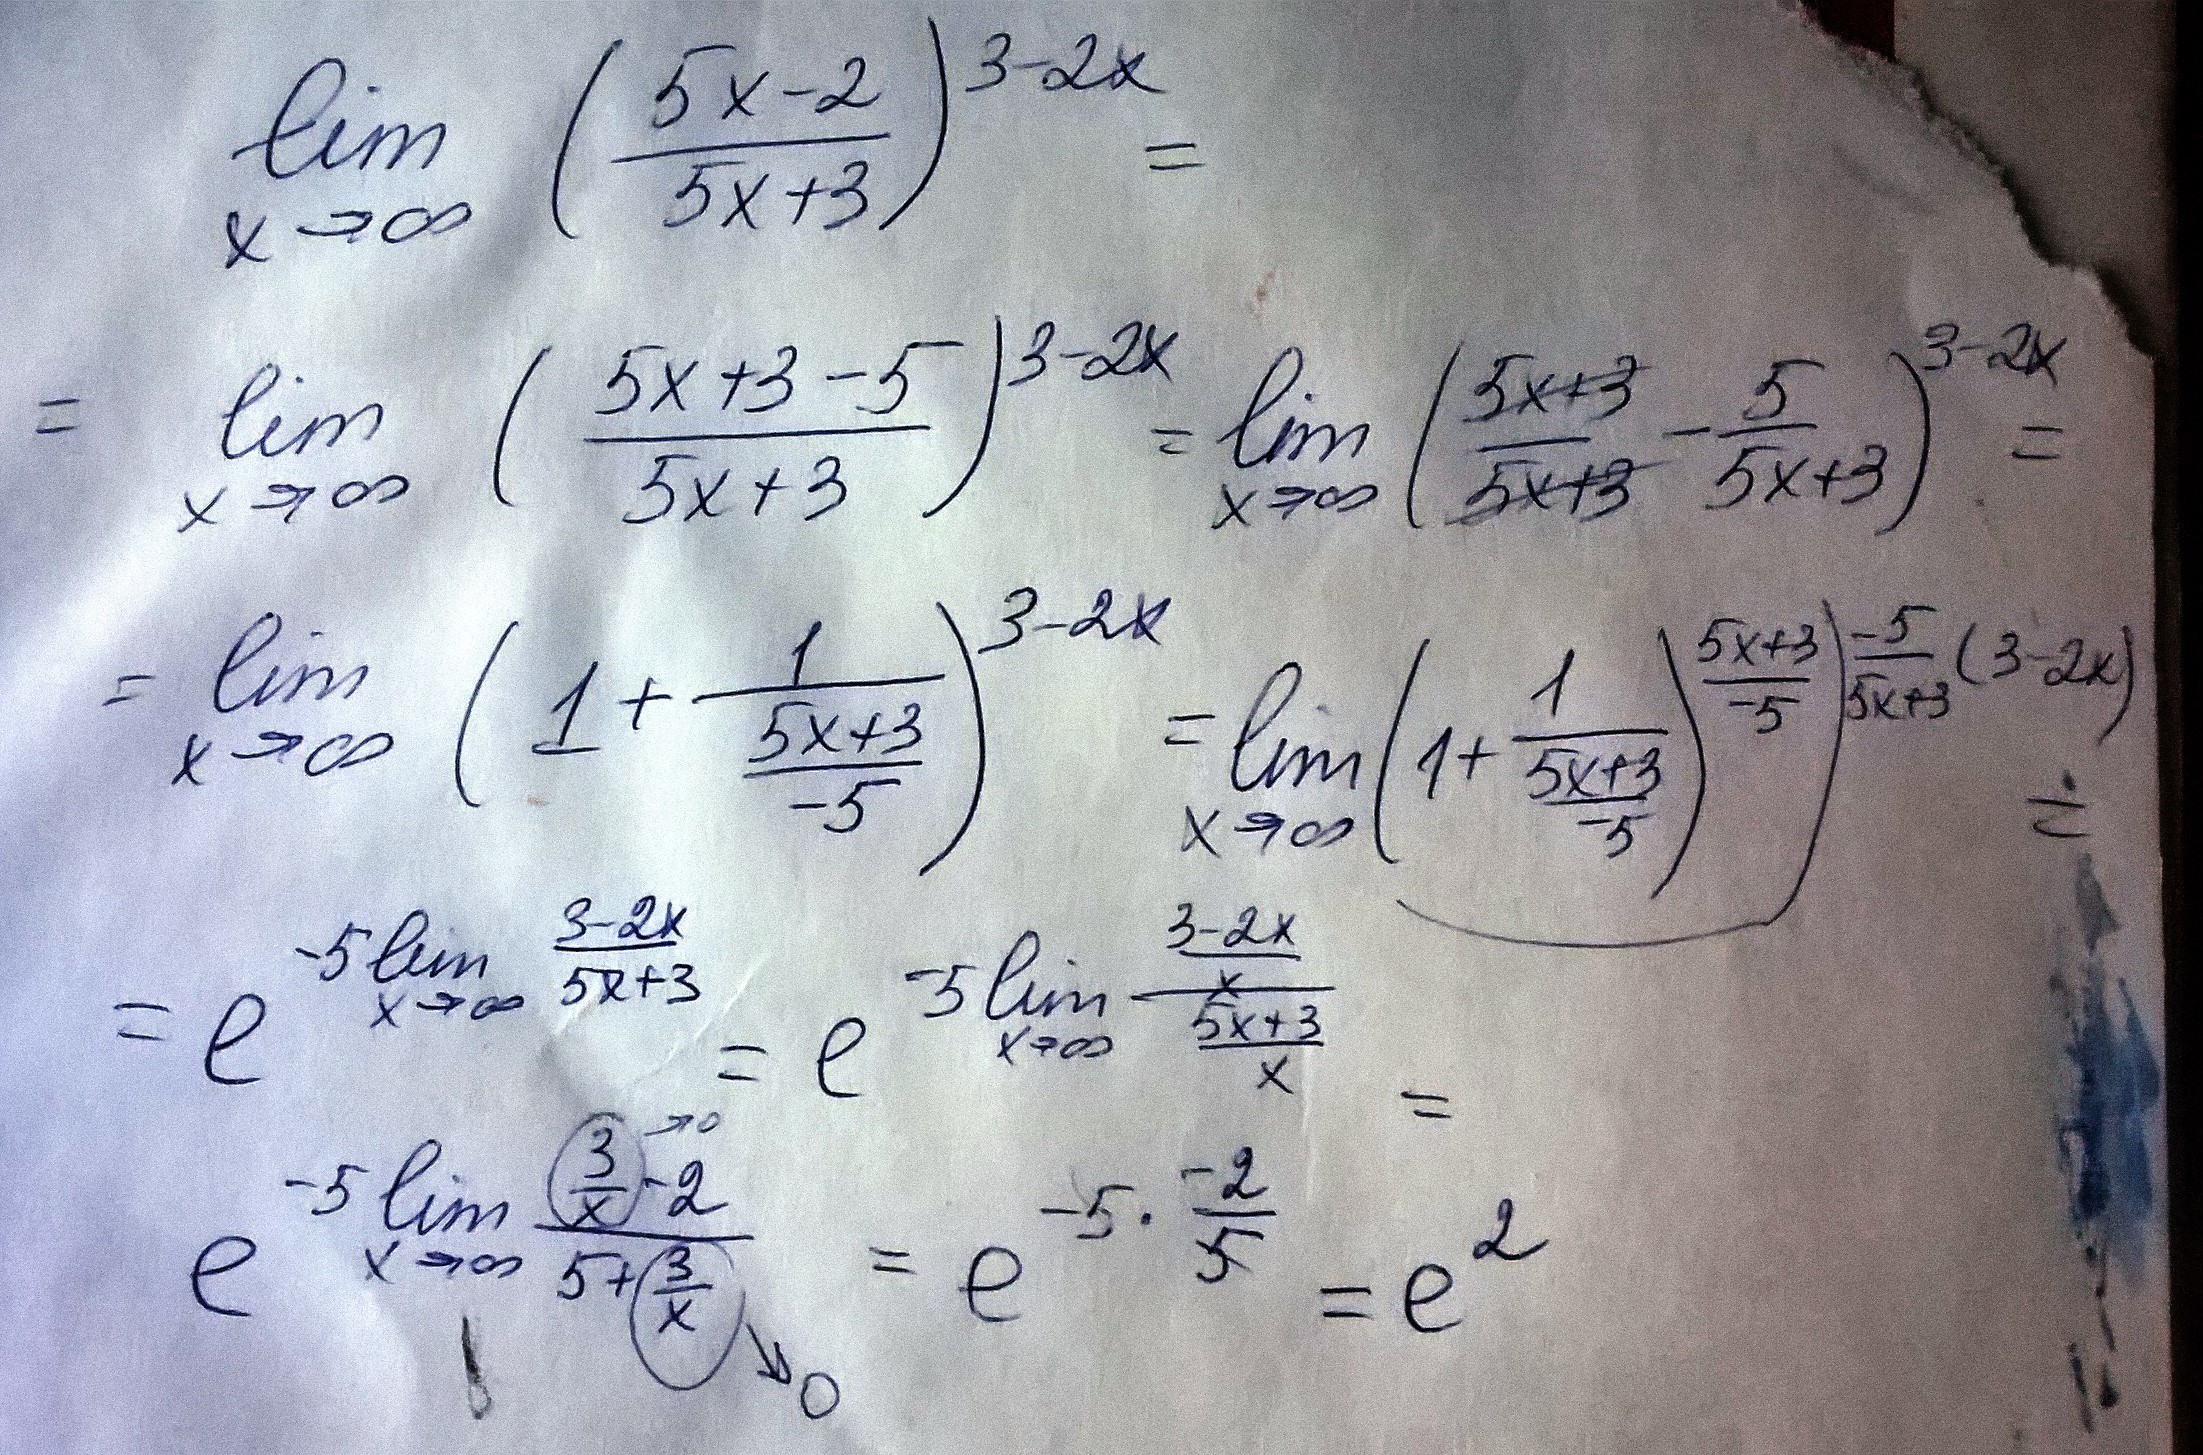 lim x→∞ ((5x-2)/(5x+3))^(3-2x) =
= lim x→∞ ((5x+3-5)/(5x+3))^(3-2x) = lim x→∞ ((5x+3)/(5x+3) - 5/(5x+3))^(3-2x) =
= lim x→∞ (1 + 1/((5x+3)/-5))^(3-2x) = lim x→∞ ((1 + 1/((5x+3)/-5))^((5x+3)/-5))^(-5/(5x+3) (3-2x)) =
= e^(-5 lim x→∞ (3-2x)/(5x+3)) = e^(-5 lim x→∞ ((3-2x)/x)/((5x+3)/x)) =
e^(-5 lim x→∞ (3/x -2)/(5+3/x)) = e^(-5 · -2/5) = e^2
→0
→0